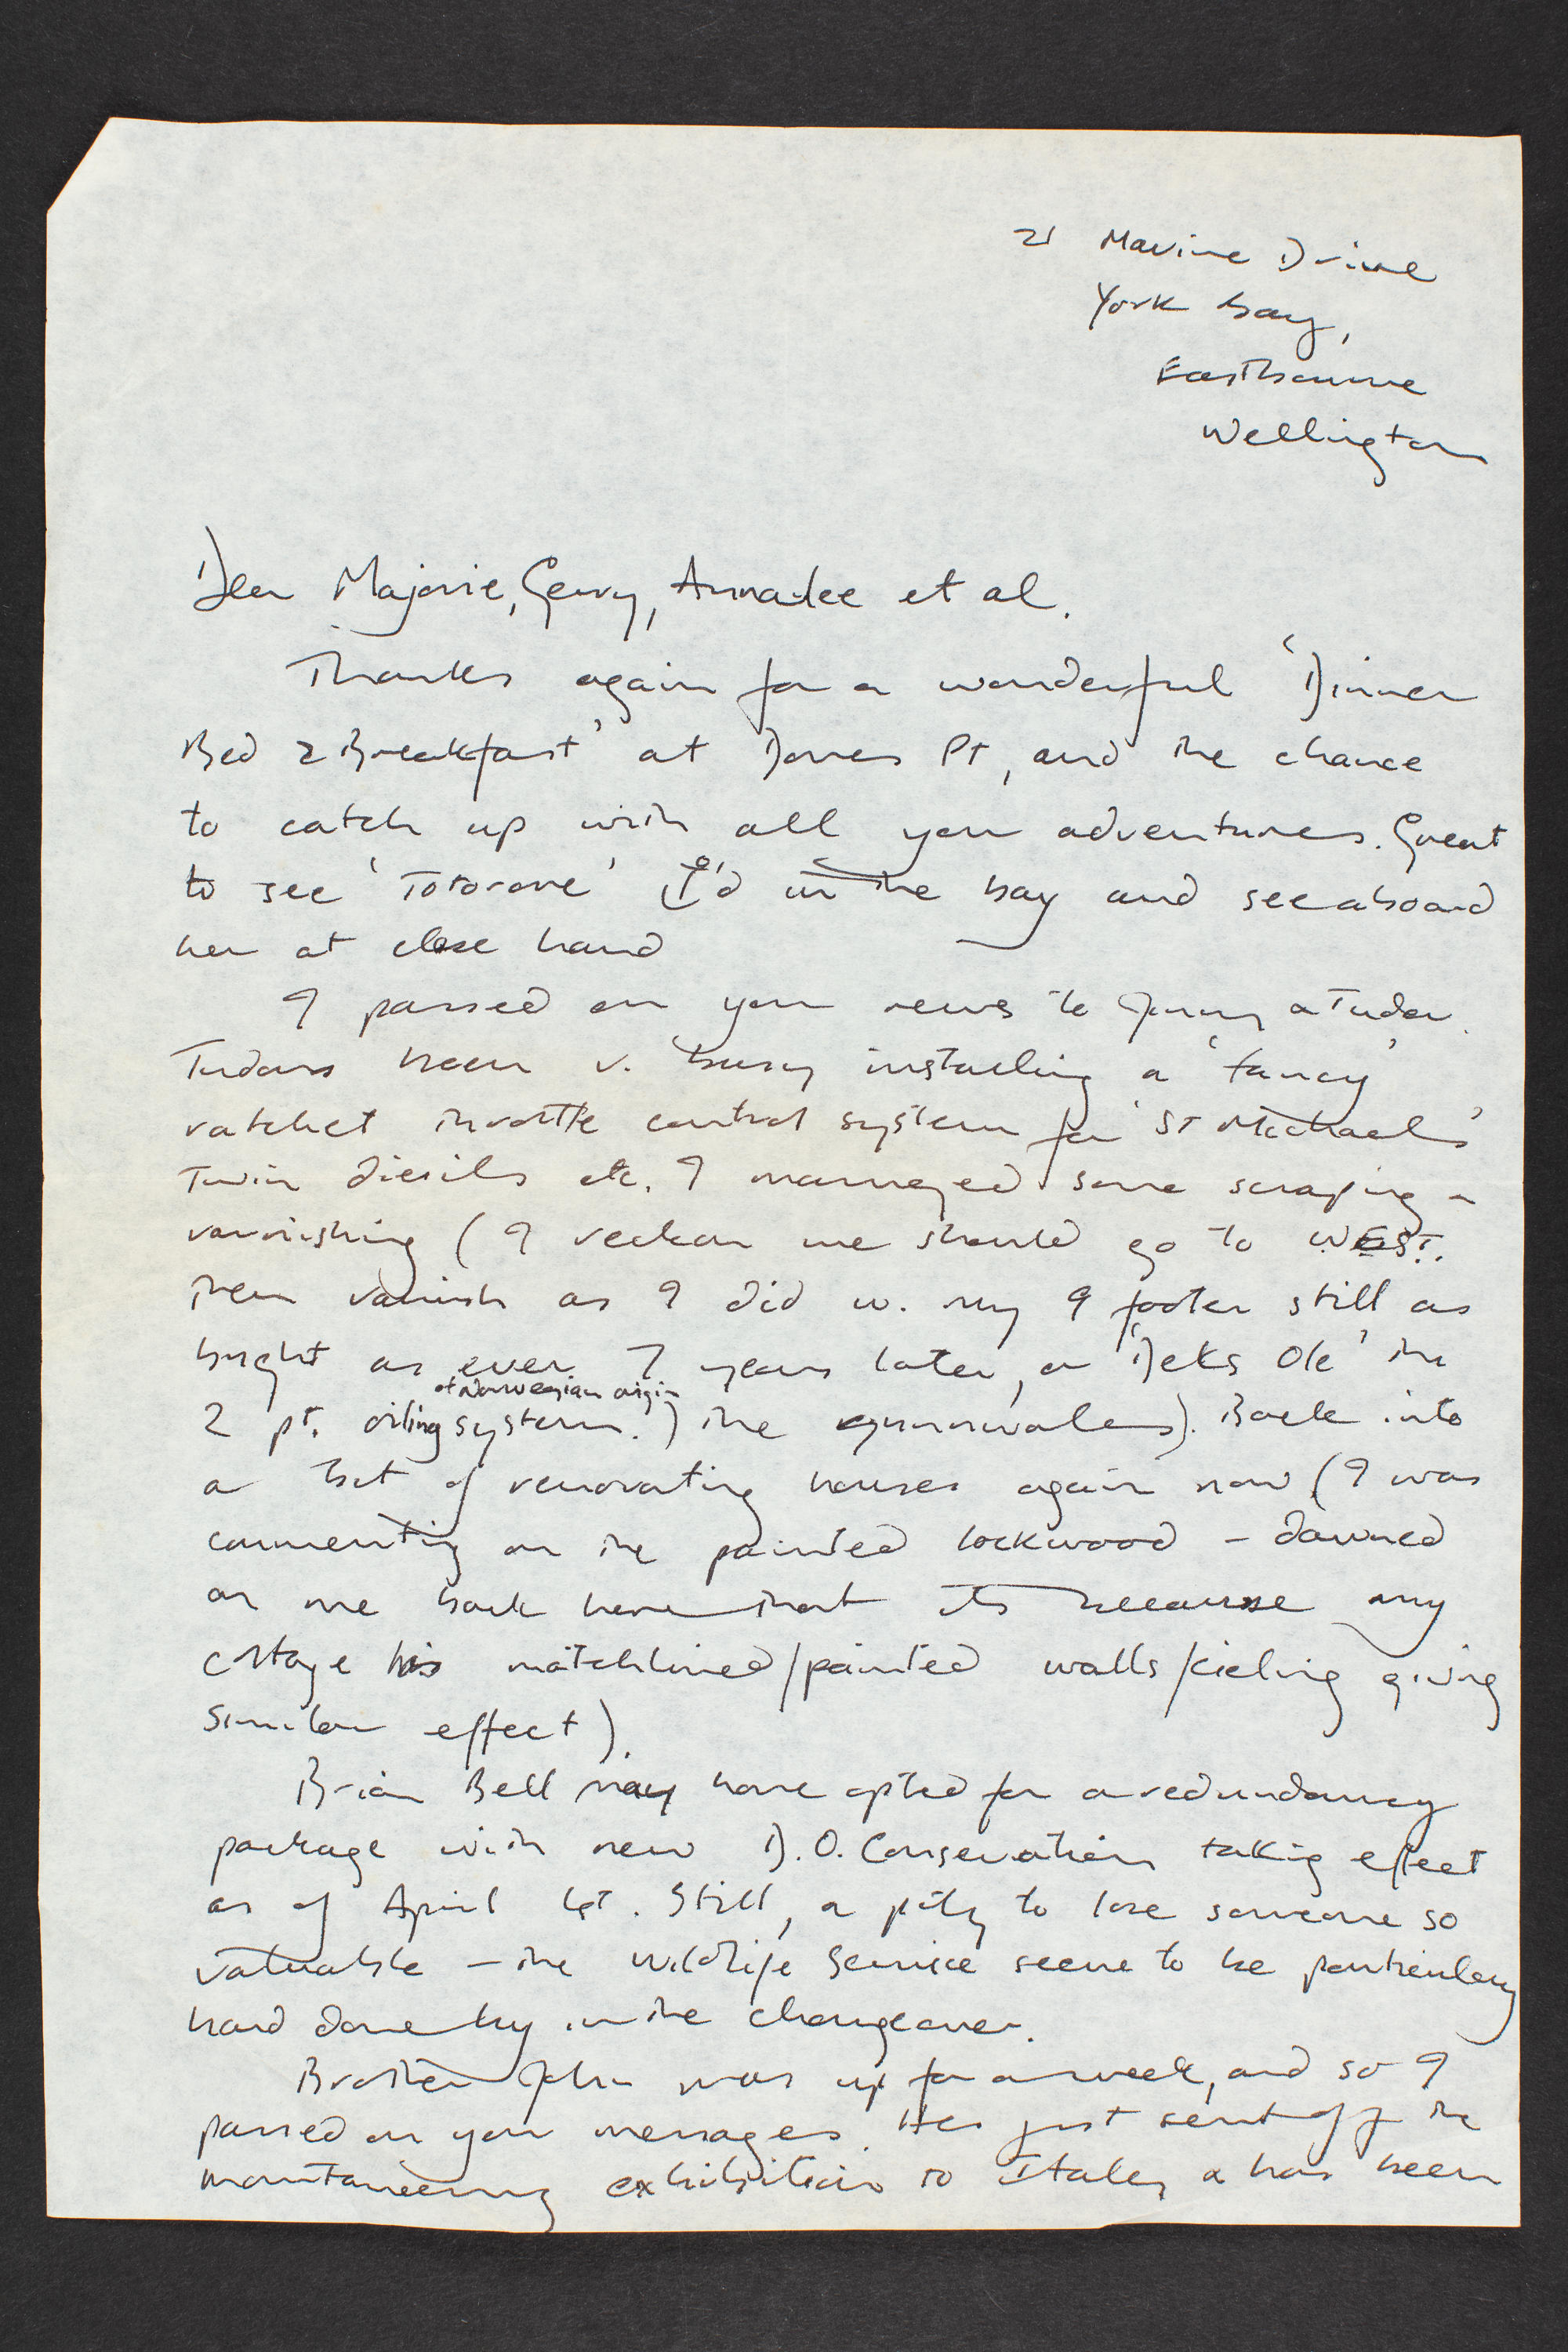 21 Marine Drive
York Bay,
Eastbourne
Wellington
Dear Majorie, Gerry, Annalee et al.
Thanks again for a wonderful 'Dinner
Bed & Breakfast' at Doves Pt, and the chance
to catch up with all your adventures. Great
to see 'Totorore' ⚓'d in the bay and see aboard
her at close hand
I passed on your news to Jenny & Tudor.
Tudors been v. busy installing a 'fancy'
ratchet throttle control system for 'St Michael's'
Twin diesils etc. I mannaged some scraping &
varnishing (I reckon we should go to W.E.S.T.
then varnish as I did w. my 9 footer still as
bright as ever 7 years later, or 'Deks Ole' the
of Norwegian origin
2 pt. oiling system.) the gunnwales). Back into
a bit of renovating houses again now (I was
commenting on the painted lockwood – dawned
on me back here that its because my
cottage has matchlined/painted walls/cieling giving
similar effect).
Brian Bell may have opted for a redundancy
package with new D.O. Conservation taking effect
as of April 1st. Still, a pity to lose someone so
valuable – the Wildlife Service seem to be particulary
hard done by in the changeover.
Brother John was up for a week, and so I
passed on your messages. Hes just sent off the
mountaineering exhibition to Italy & has been